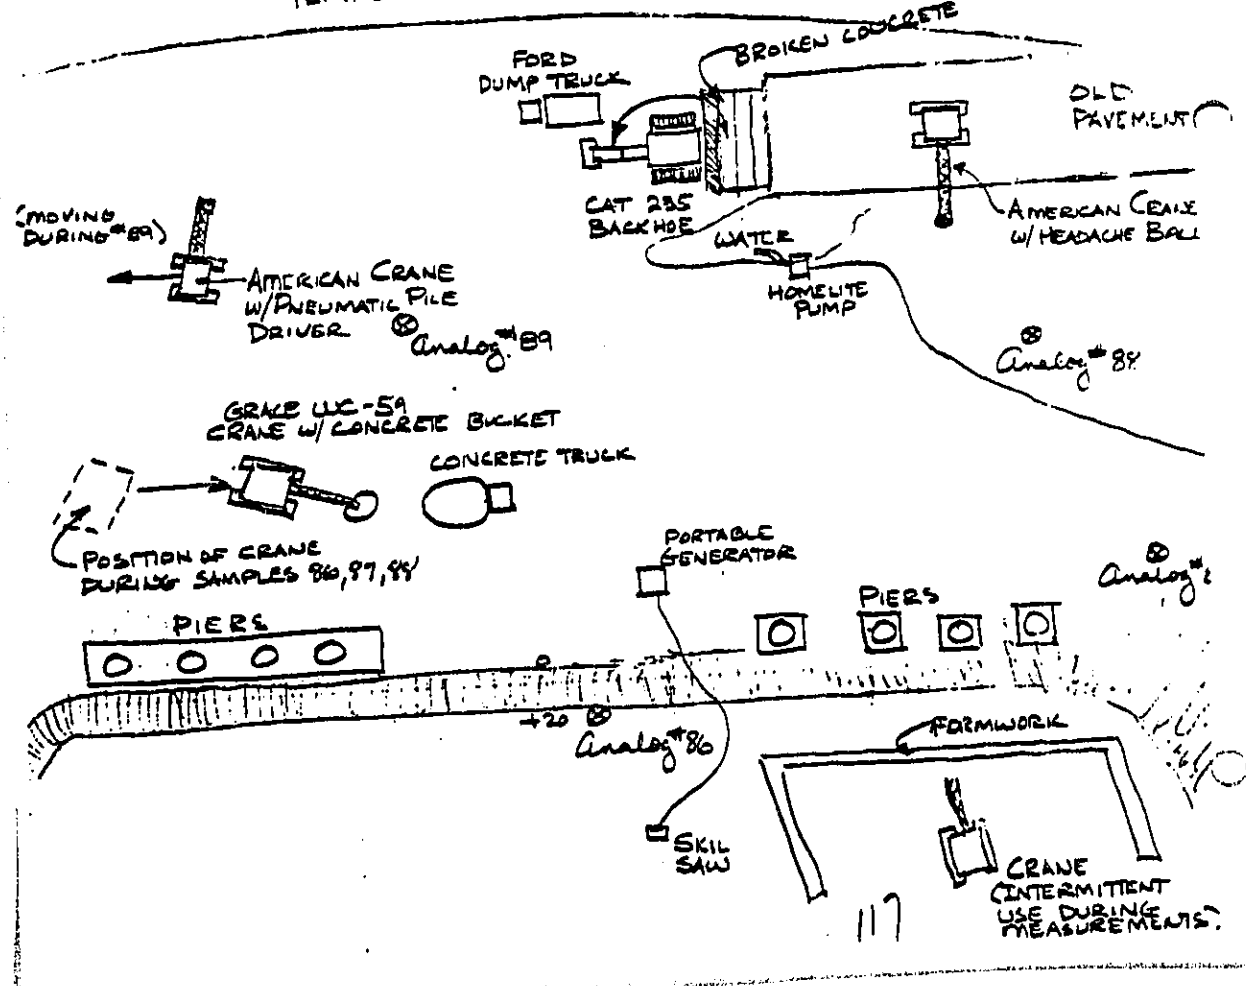 BROKEN CONCRETE
FORD
DUMP TRUCK
OLD
PAVEMENT
CAT 235
BACKHOE
AMERICAN CRANE
W/HEADACHE BALL
WATER
HOMELITE
PUMP
(MOVING
DURING #89)
AMERICAN CRANE
W/PNEUMATIC PILE
DRIVER
Analog #89
Analog #88
GRACE
CRANE W/CONCRETE BUCKET
CONCRETE TRUCK
POSITION OF CRANE
DURING SAMPLES 86,87,88
PORTABLE
GENERATOR
Analog #
PIERS
PIERS
0
+20
Analog #86
FORMWORK
SKIL
SAW
CRANE
(INTERMITTENT
USE DURING
MEASUREMENTS)
117